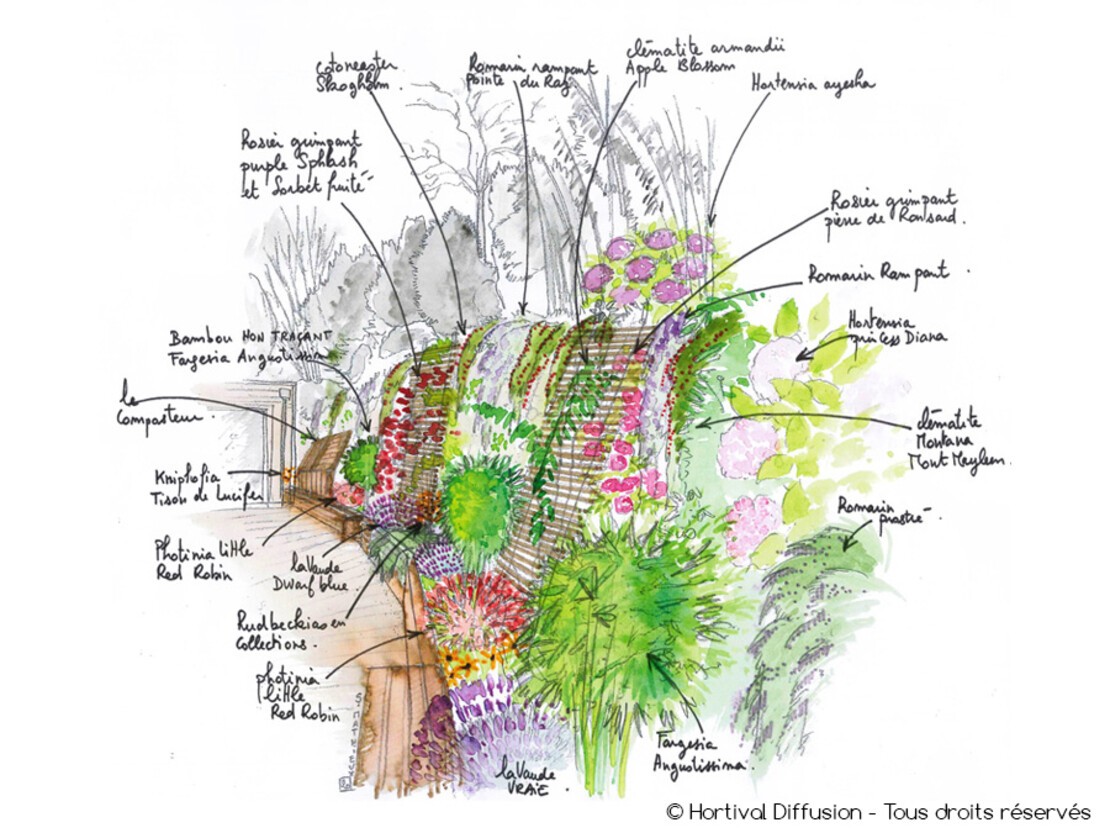 Cotoneaster
Skogholm.
Romarin rampant
Pointe du Raz
Clématite armandii
Apple Blossom
Hortensia ayesha
Rosier grimpant
purple Sphlash
et Sorbet fruité
Rosier grimpant
pierre de Ronsard.
Romarin Rampant.
Bambou NON TRAÇANT
Fargesia Angustissima
Hortensia
princess Diana
le
Composteur.
clématite
Montana
Mont Mayleen.
Kniphofia
Tison de Lucifer
Romarin
prostré.
Photinia little
Red Robin
lavande
Dwarf blue.
Rudbeckias en
Collections.
photinia
little
Red Robin
Fargesia
Angustissima.
lavande
VRAIE.
© Hortival Diffusion - Tous droits réservés